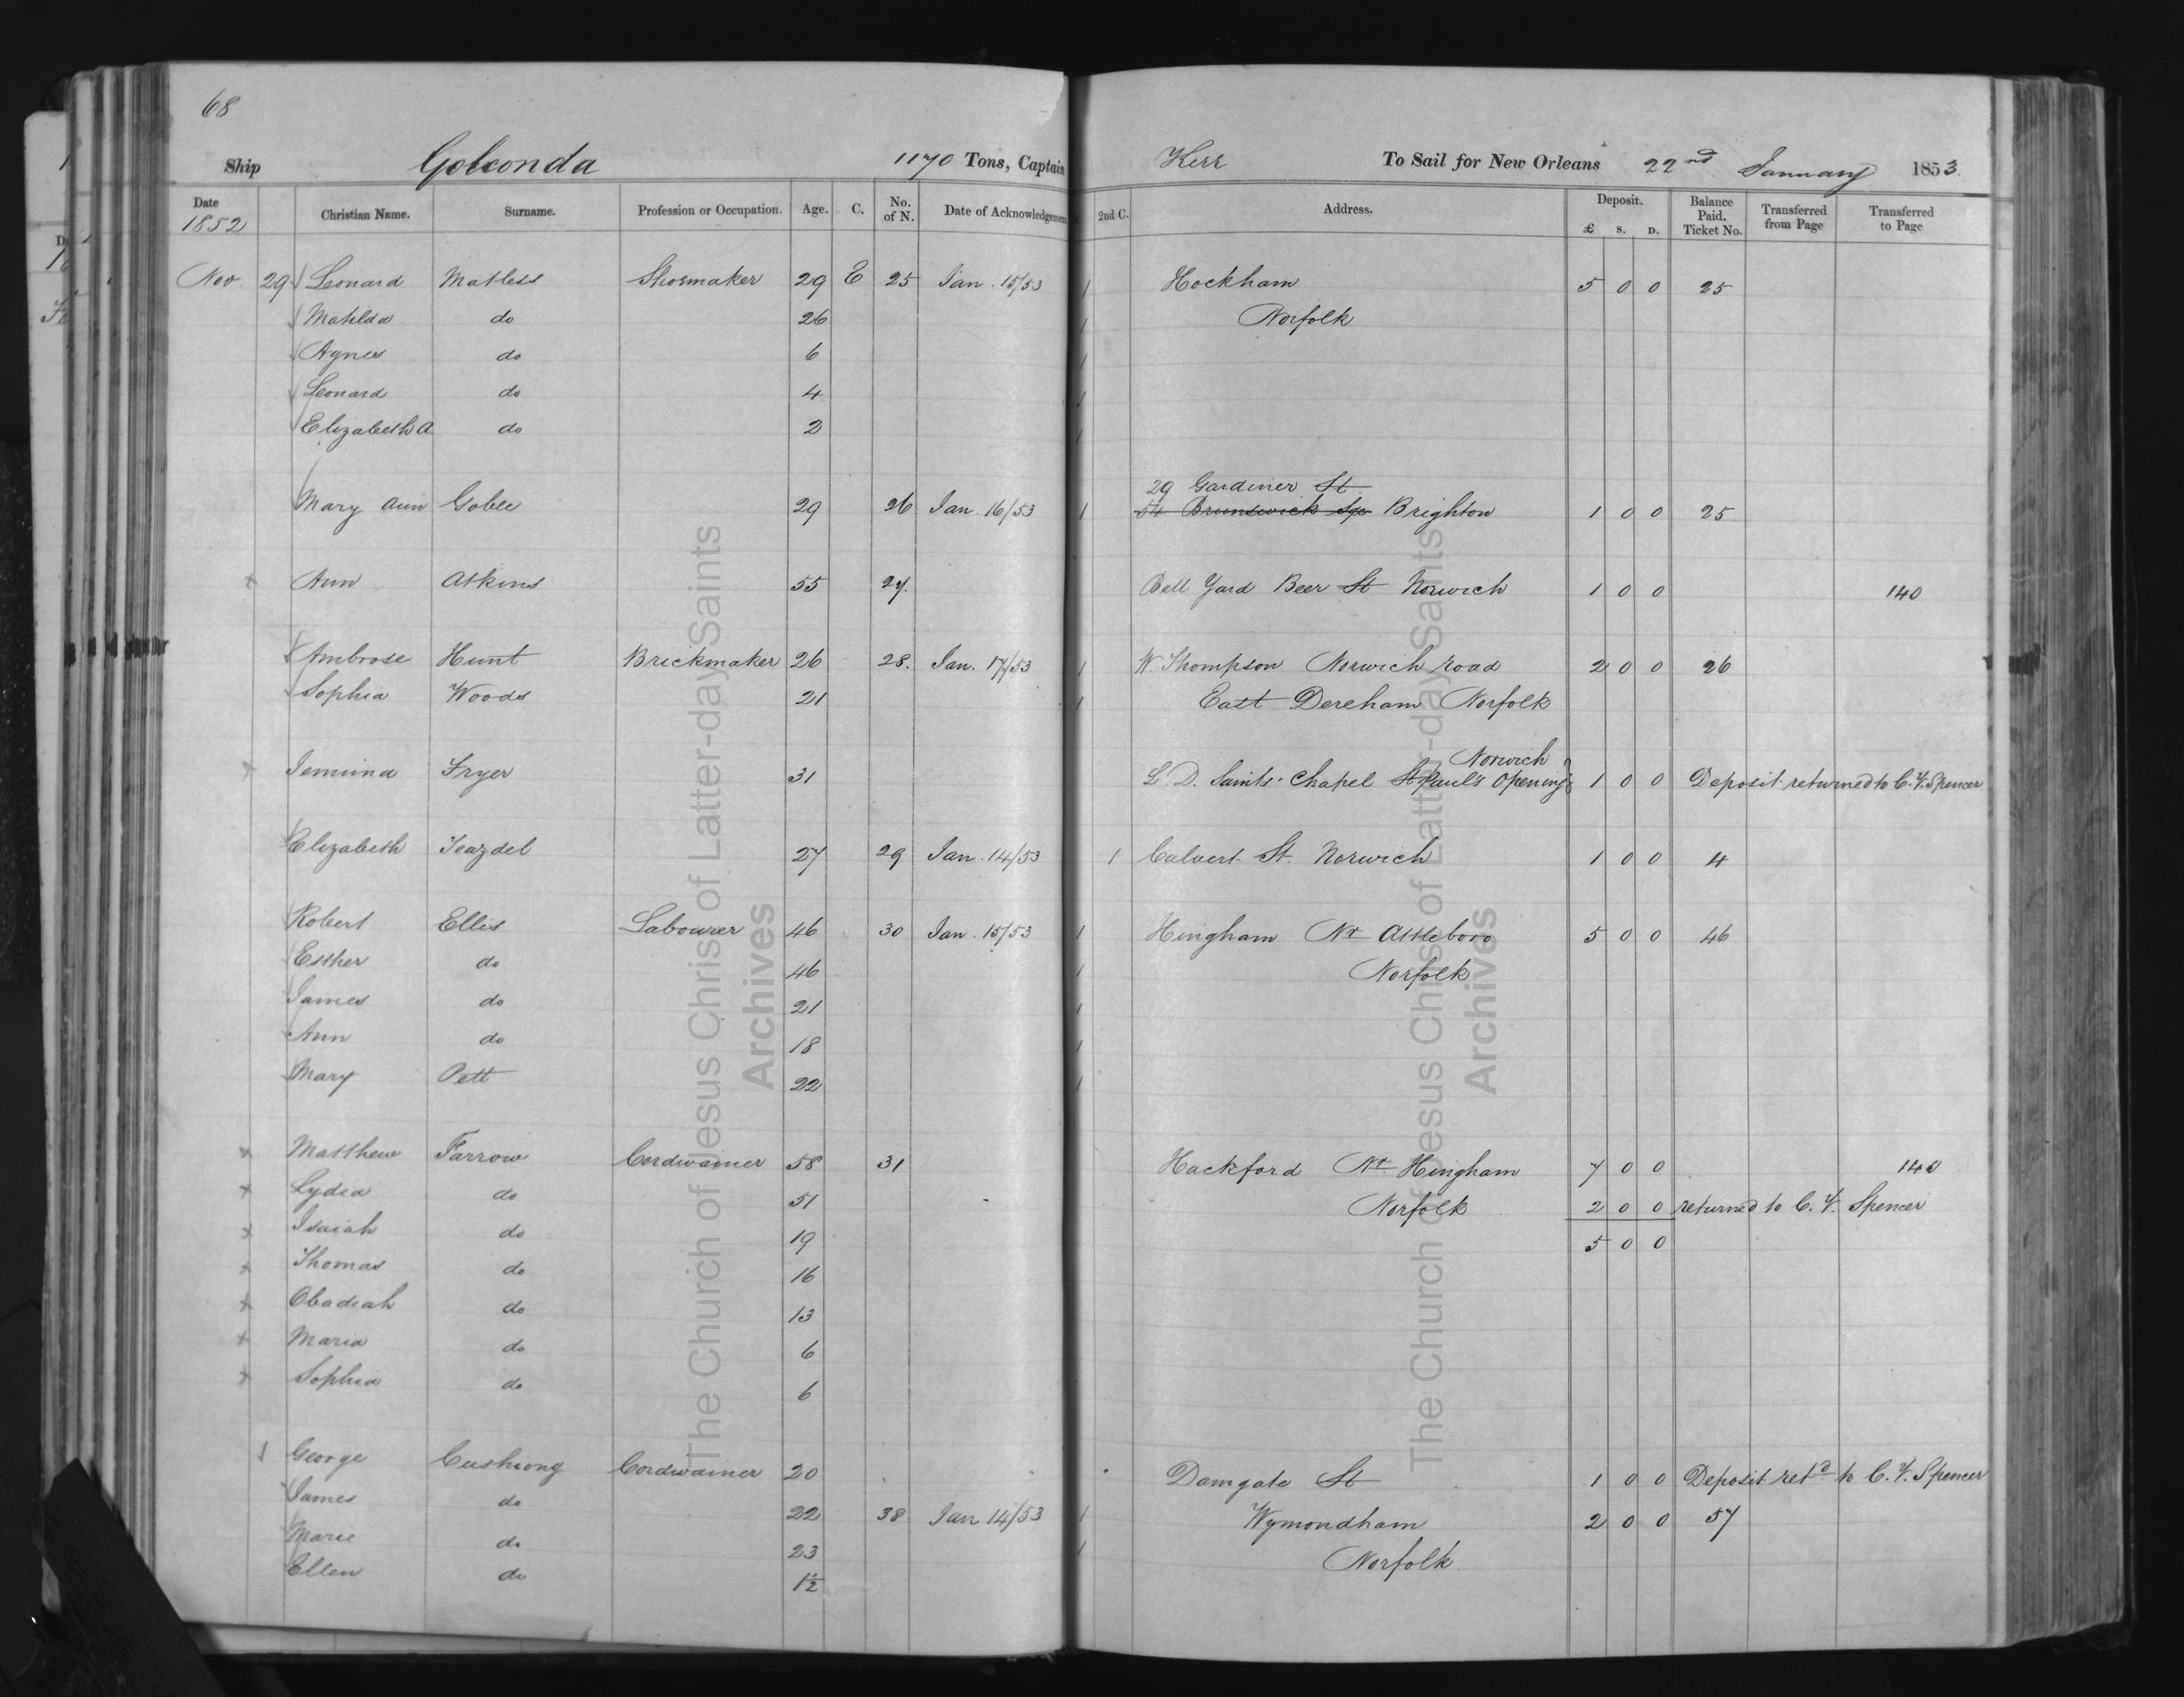 68
Ship Golconda 1170 Tons, Captain Kerr To Sail for New Orleans 22nd January 1853.
Date 1852 Christian Name. Surname. Profession or Occupation. Age. C. No. of N. Date of Acknowledgement 2nd C. Address. Deposit. £ S. D. Balance Paid. Ticket No. Transferred from Page Transferred to Page
Nov 29 Leonard Matless Shoemaker 29 E 25 Jan. 15/53 1 Hockham 5 0 0 25
Matilda do 26 1 Norfolk
Agnes do 6 1
Leonard do 4 1
Elizabeth A. do 2 1
29 Gardiner St.
Mary Ann Goble 29 26 Jan. 16/53 1 54 Brunswick Sqe Brighton 1 0 0 25
x Ann Atkins 55 27. Bell Yard Beer St Norwich 1 0 0 140
Ambrose Hunt Brickmaker 26 28. Jan. 17/53 1 W. Thompson Norwich road 2 0 0 26
Sophia Woods 21 1 East Dereham Norfolk
Norwich
x Jemima Fryer 31 L. D. Saints' Chapel St Paul's Opening 1 0 0 Deposit returned to C. V. Spencer
Elizabeth Teazdel 27 29 Jan. 14/53 1 Calvert St. Norwich 1 0 0 4
Robert Ellis Labourer 46 30 Jan. 15/53 1 Hingham Nr Attleboro 5 0 0 46
Esther do 46 1 Norfolk
James do 21 1
Ann do 18 1
Mary Pett 22 1
x Matthew Farrow Cordwainer 58 31 Hackford Nr Hingham 7 0 0 140
x Lydia do 51 Norfolk 2 0 0 returned to C. V. Spencer
x Isaiah do 19 5 0 0
x Thomas do 16
x Obadiah do 13
x Maria do 6
x Sophia do 6
1 George Cushiong Cordwainer 20 Damgate St 1 0 0 Deposit retd to C. V. Spencer
James do 22 38 Jan 14/53 1 Wymondham 2 0 0 57
Marie do 23 1 Norfolk
Ellen do 1½
The Church of Jesus Christ of Latter-day Saints
Archives
The Church of Jesus Christ of Latter-day Saints
Archives